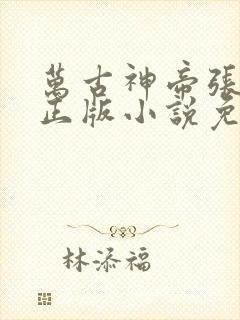 萬古神帝張
正版小說免
林添福